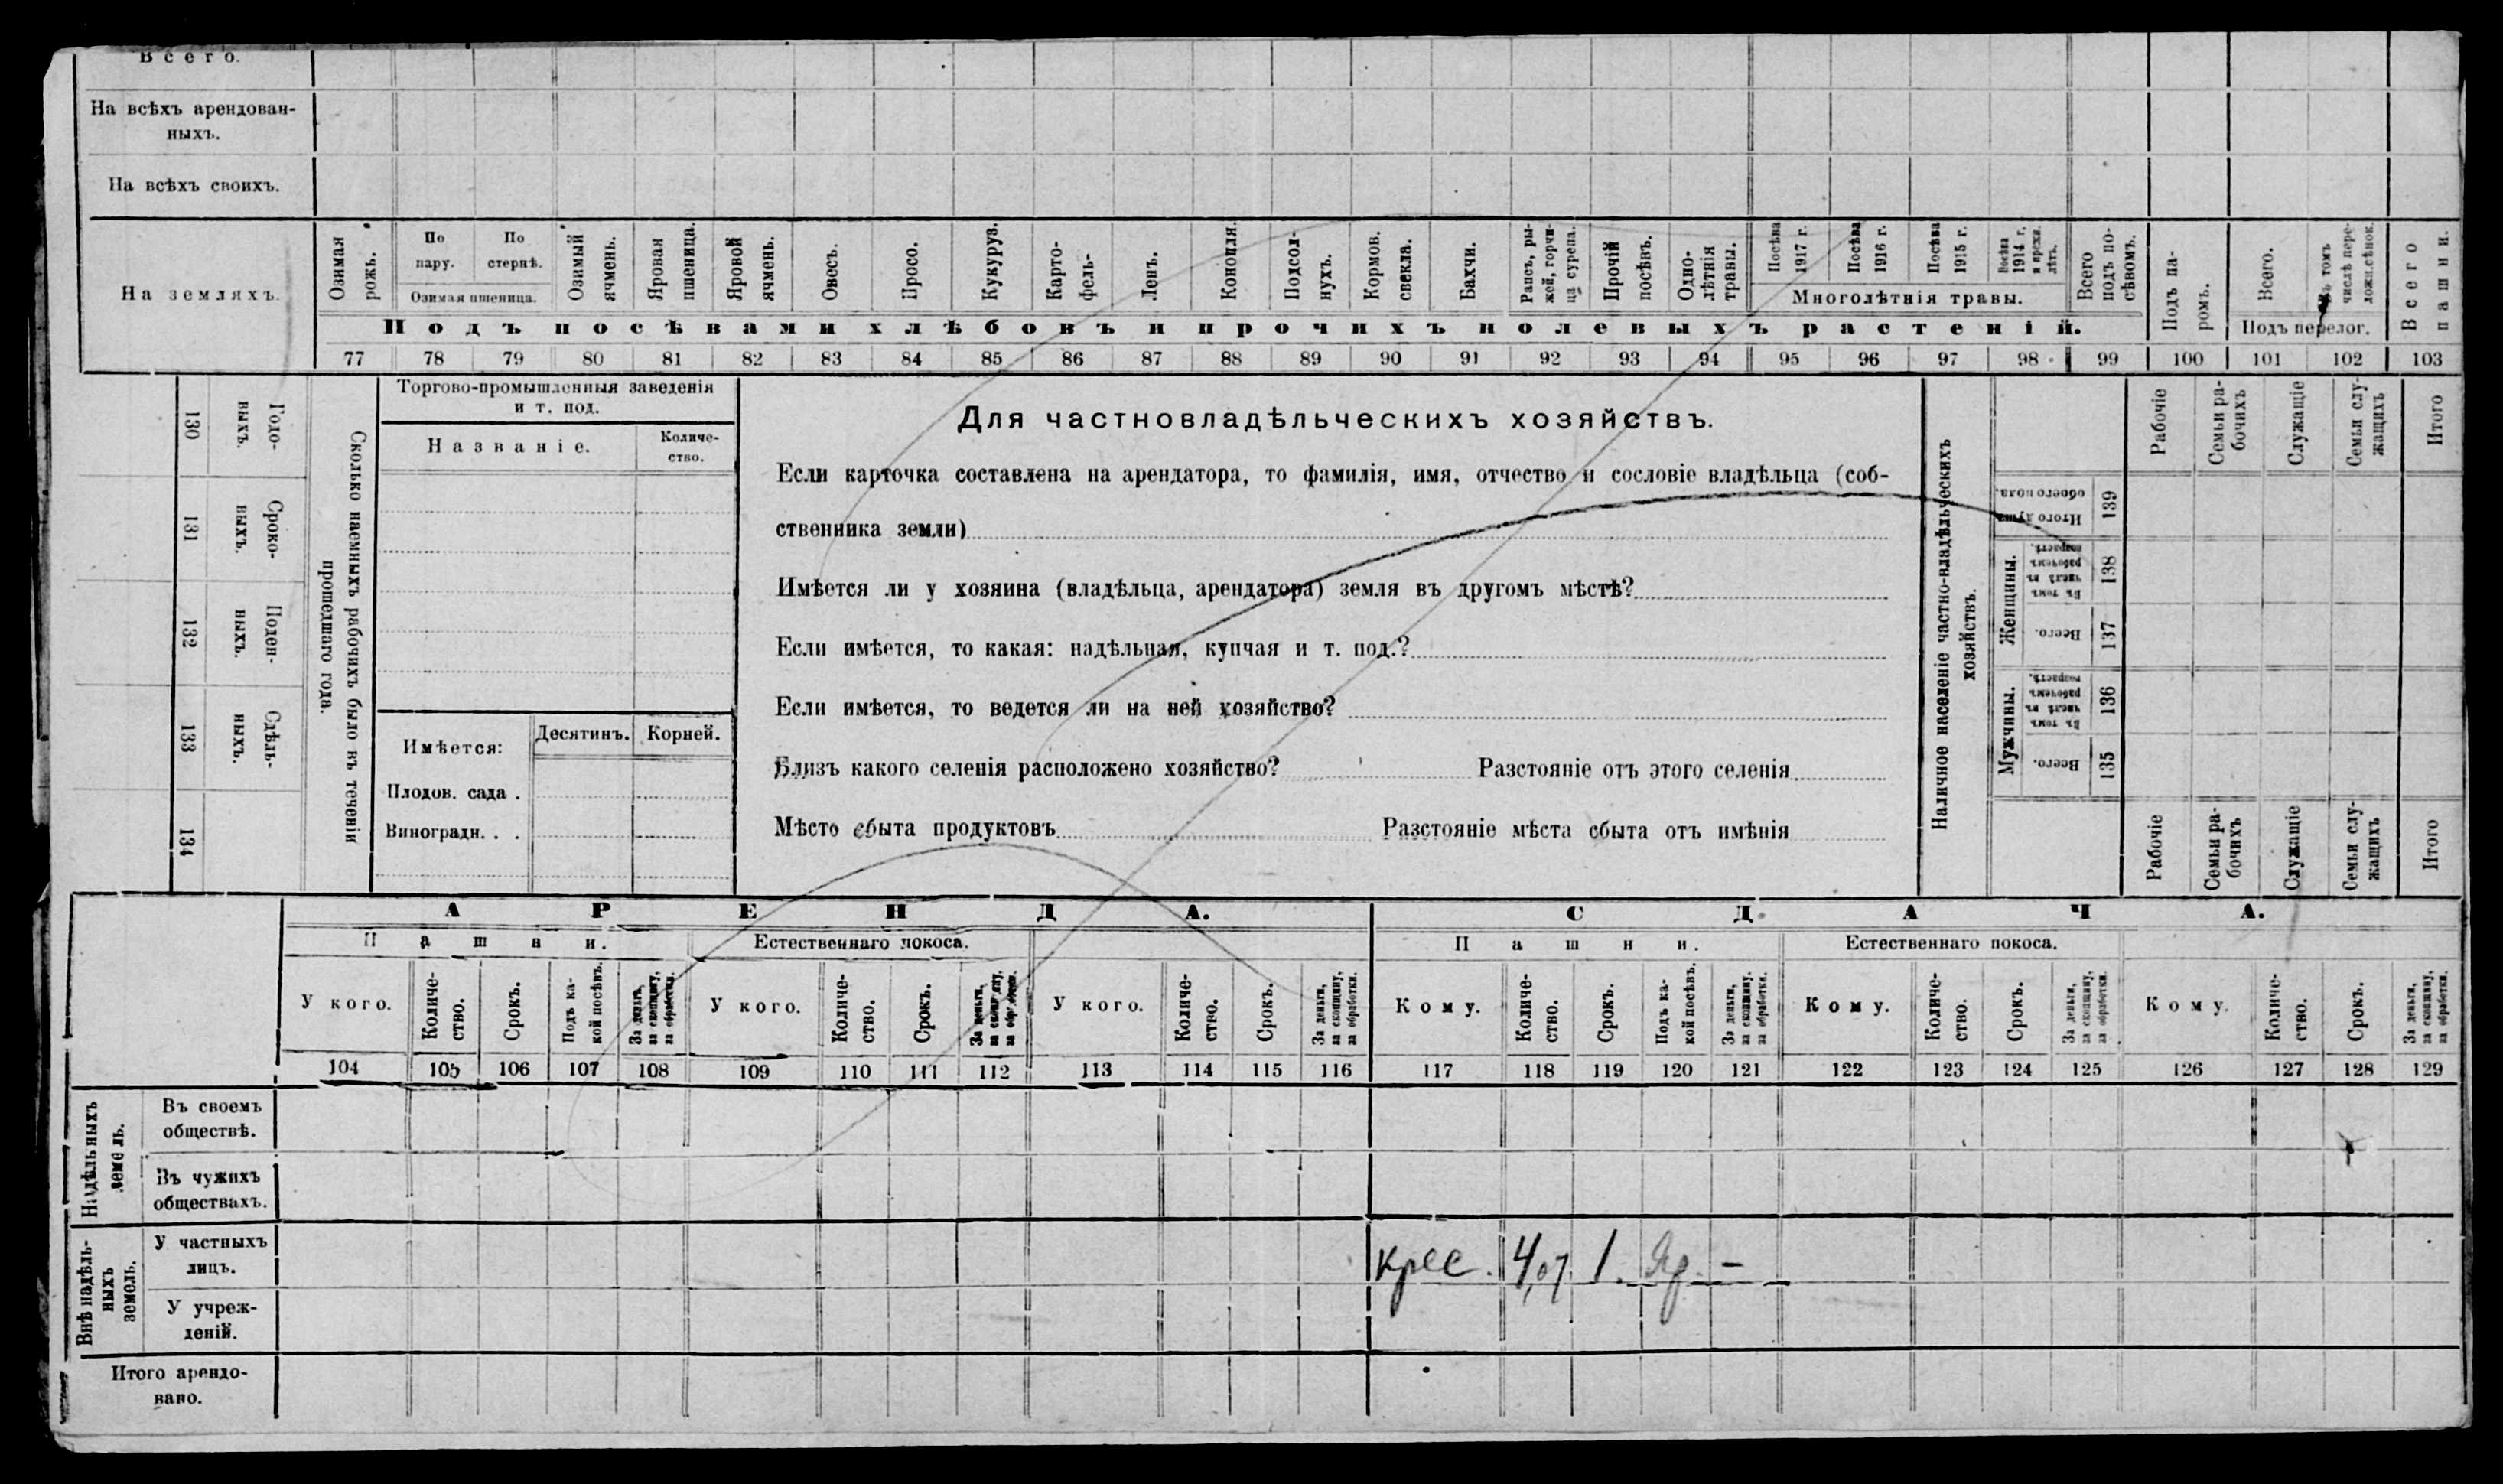 Всего.
На всѣхъ арендован-
ныхъ.
На всѣхъ своихъ.
На земляхъ.
Озимая рожь.
По пару.
По стернѣ.
Озимая пшеница.
Озимый ячмень.
Яровая пшеница.
Яровой ячмень.
Овесъ.
Просо.
Кукуруз.
Карто-
фель-
Ленъ.
Конопля.
Подсол-
нухъ.
Кормов. свекла.
Бахчи.
Рапсъ, ры-
жей, горчи-
ца сурепа.
Прочій посѣвъ.
Одно-
лѣтнія травы.
Посѣва 1917 г.
Посѣва 1916 г.
Посѣва 1915 г.
Посѣва 1914 г.
Многолѣтнія травы.
Всего подъ по-
сѣвомъ.
Подъ па-
ромъ.
Всего.
Въ томъ числѣ пере-
Подъ перелог.
Всего пашни.
Подъ посѣвами хлѣбовъ и прочихъ полевыхъ растеній.
77 78 79 80 81 82 83 84 85 86 87 88 89 90 91 92 93 94 95 96 97 98 99 100 101 102 103
130 Годо-
выхъ.
131 Сроко-
выхъ.
132 Поден-
ныхъ.
133 Сдѣль-
ныхъ.
134
Сколько наемныхъ рабочихъ было въ теченіи
прошедшаго года.
Торгово-промышленныя заведенія
и т. под.
Названіе.
Количе-
ство.
Имѣется:
Десятинъ.
Корней.
Плодов. сада .
Виноградн. . .
Для частновладѣльческихъ хозяйствъ.
Если карточка составлена на арендатора, то фамилія, имя, отчество и сословіе владѣльца (соб-
ственника земли)
Имѣется ли у хозяина (владѣльца, арендатора) земля въ другомъ мѣстѣ?
Если имѣется, то какая: надѣльная, купчая и т. под.?
Если имѣется, то ведется ли на ней хозяйство?
Близъ какого селенія расположено хозяйство? Разстояніе отъ этого селенія
Мѣсто сбыта продуктовъ Разстояніе мѣста сбыта отъ имѣнія
Наличное населеніе частно-владѣльческихъ
хозяйствъ.
Итого душъ обоего пола. 139
Женщины.
Въ томъ числѣ въ рабочемъ возрастѣ. 138
Всего. 137
Мужчины.
Въ томъ числѣ въ рабочемъ возрастѣ. 136
Всего. 135
Рабочіе
Семьи ра-
бочихъ
Служащіе
Семьи слу-
жащихъ
Итого
Рабочіе
Семьи ра-
бочихъ
Служащіе
Семьи слу-
жащихъ
Итого
АРЕНДА.
СДАЧА.
Пашни.
Естественнаго покоса.
Пашни.
Естественнаго покоса.
У кого.
Количе-
ство.
Срокъ.
Подъ ка-
кой посѣвъ.
За деньги,
за скопщину,
за обработки.
У кого.
Количе-
ство.
Срокъ.
За деньги,
за скопщину,
за обработки.
У кого.
Количе-
ство.
Срокъ.
За деньги,
за скопщину,
за обработки.
Кому.
Количе-
ство.
Срокъ.
Подъ ка-
кой посѣвъ.
За деньги,
за скопщину,
за обработки.
Кому.
Количе-
ство.
Срокъ.
За деньги,
за скопщину,
за обработки.
Кому.
Количе-
ство.
Срокъ.
За деньги,
за скопщину,
за обработки.
104 105 106 107 108 109 110 111 112 113 114 115 116 117 118 119 120 121 122 123 124 125 126 127 128 129
Надѣльныхъ
земель.
Въ своемъ
обществѣ.
Въ чужихъ
обществахъ.
Внѣ надѣль-
ныхъ
земель.
У частныхъ
лицъ.
крес. 4,07 1. Яр. –
У учреж-
деній.
Итого арендо-
вано.